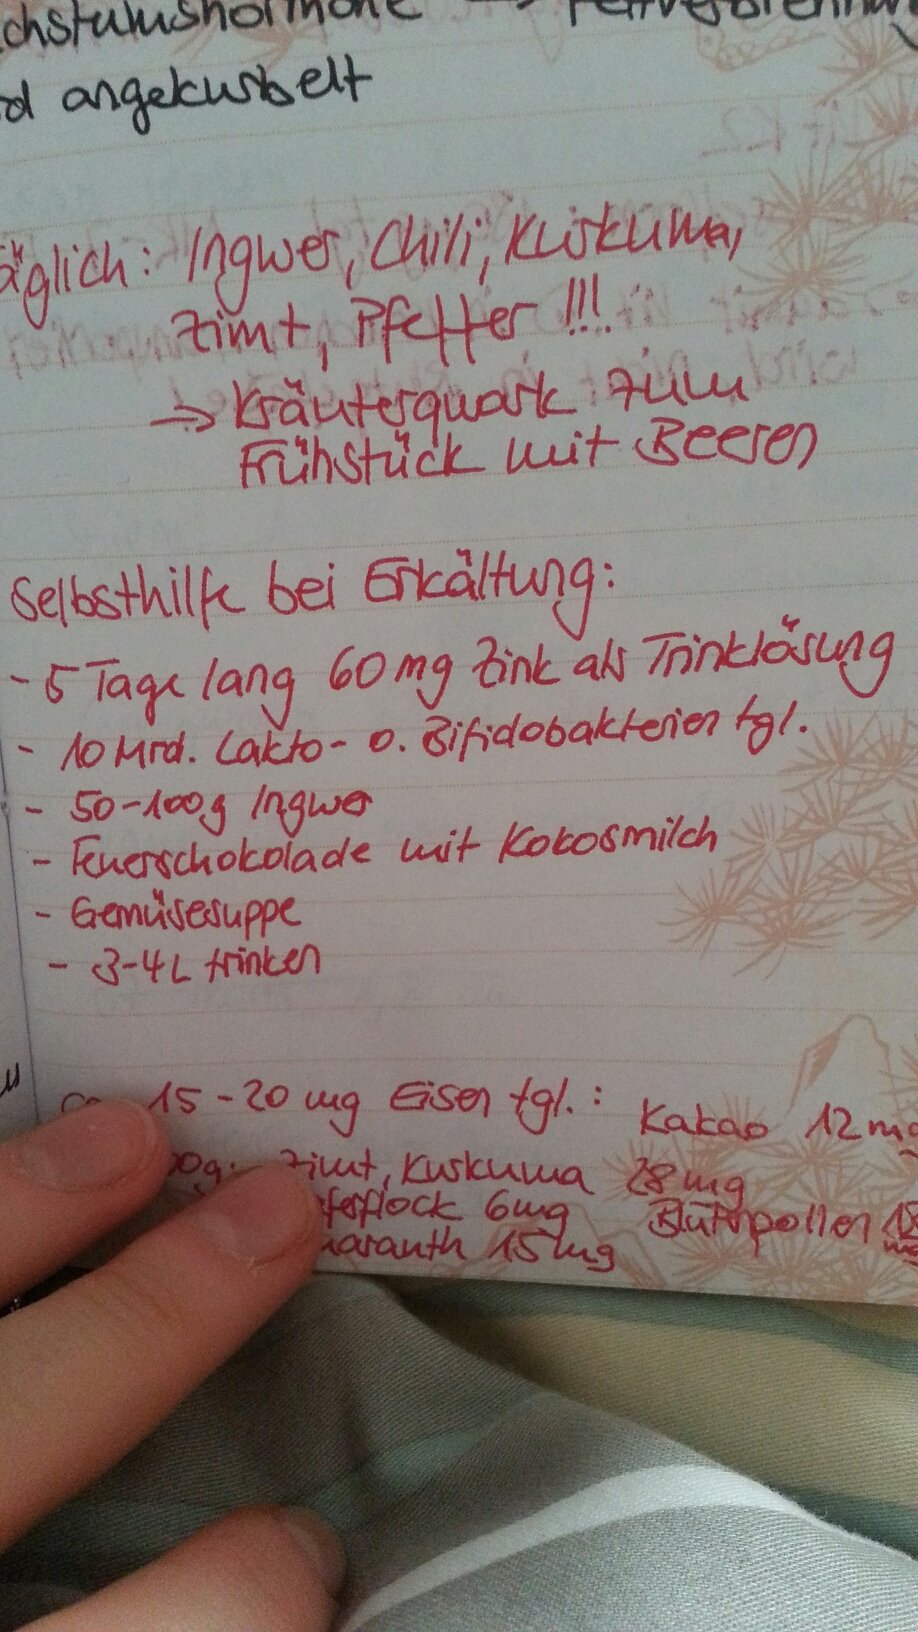 wachstumshormone → Fettverbrennung
wird angekurbelt
täglich: Ingwer, Chili, Kurkuma,
Zimt, Pfeffer !!!
→ Kräuterquark zum
Frühstück mit Beeren
Selbsthilfe bei Erkältung:
- 5 Tage lang 60 mg Zink als Trinklösung
- 10 Mrd. Lakto- o. Bifidobakterien tgl.
- 50-100g Ingwer
- Feuerschokolade mit Kokosmilch
- Gemüsesuppe
- 3-4 L trinken
15-20 mg Eisen tgl.: Kakao 12 mg
Zimt, Kurkuma 28 mg
ferflock 6mg Blütenpollen
maranth 15 mg